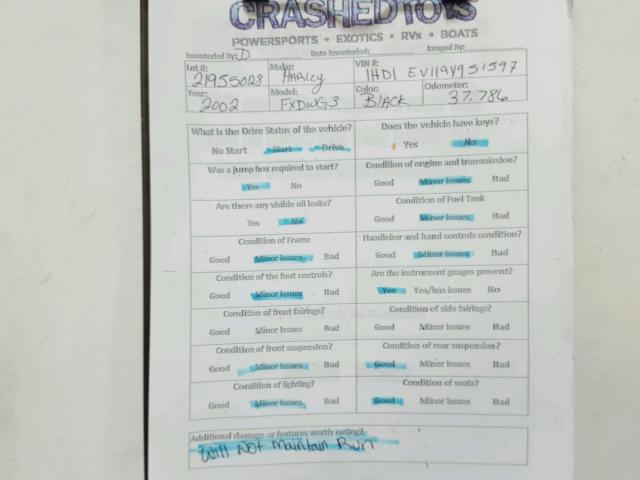 CRASHEDTOYS
POWERSPORTS • EXOTICS • RVs • BOATS
Inventoried By: D Date Inventoried: Imaged By:
Lot #: 21955028 Make: Harley VIN #: 1HD1 EV119Y951597
Year: 2002 Model: FXDWG3 Color: BLACK Odometer: 37,786
What is the Drive Status of the vehicle? Does the vehicle have keys?
No Start Start Drive Yes No
Was a jump box required to start? Condition of engine and transmission?
Yes No Good Minor Issues Bad
Are there any visible oil leaks? Condition of Fuel Tank
Yes No Good Minor Issues Bad
Condition of Frame Handlebar and hand controls condition?
Good Minor Issues Bad Good Minor Issues Bad
Condition of the foot controls? Are the instrument guages present?
Good Minor Issues Bad Yes Yes/has issues No
Condition of front fairings? Condition of side fairings?
Good Minor Issues Bad Good Minor Issues Bad
Condition of front suspension? Condition of rear suspension?
Good Minor Issues Bad Good Minor Issues Bad
Condition of lighting? Condition of seats?
Good Minor Issues Bad Good Minor Issues Bad
Additional damage or features worth noting?
Will Not Maintain Run